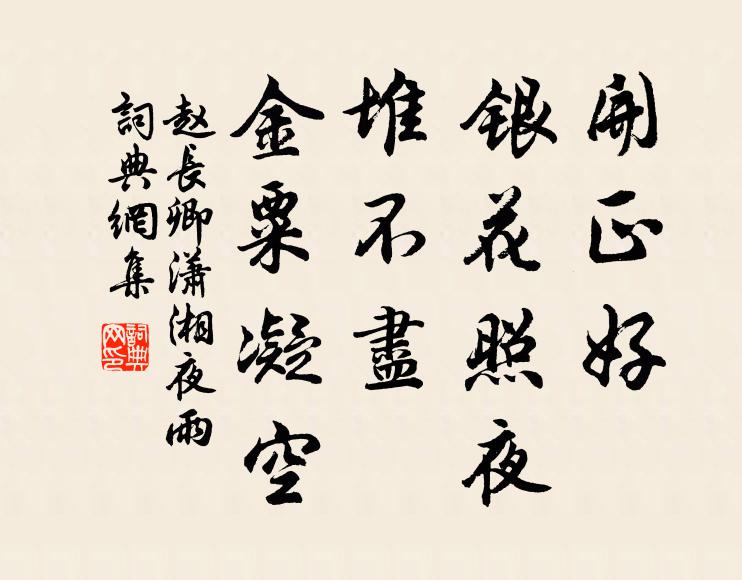 開正好
銀花照夜
堆不盡
金粟凝空
赵長卿瀟湘夜雨
詞典網集
詞典網印